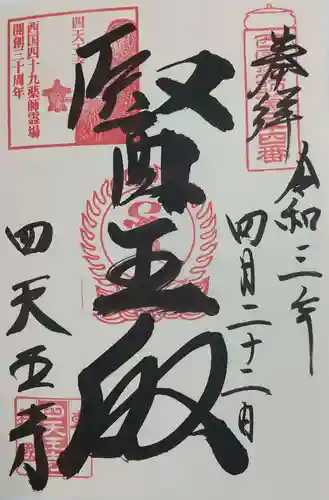 奉拝
令和三年
四月二十二日
醫王殿
四天王寺
四天王寺
西国四十九薬師霊場
開創三十周年